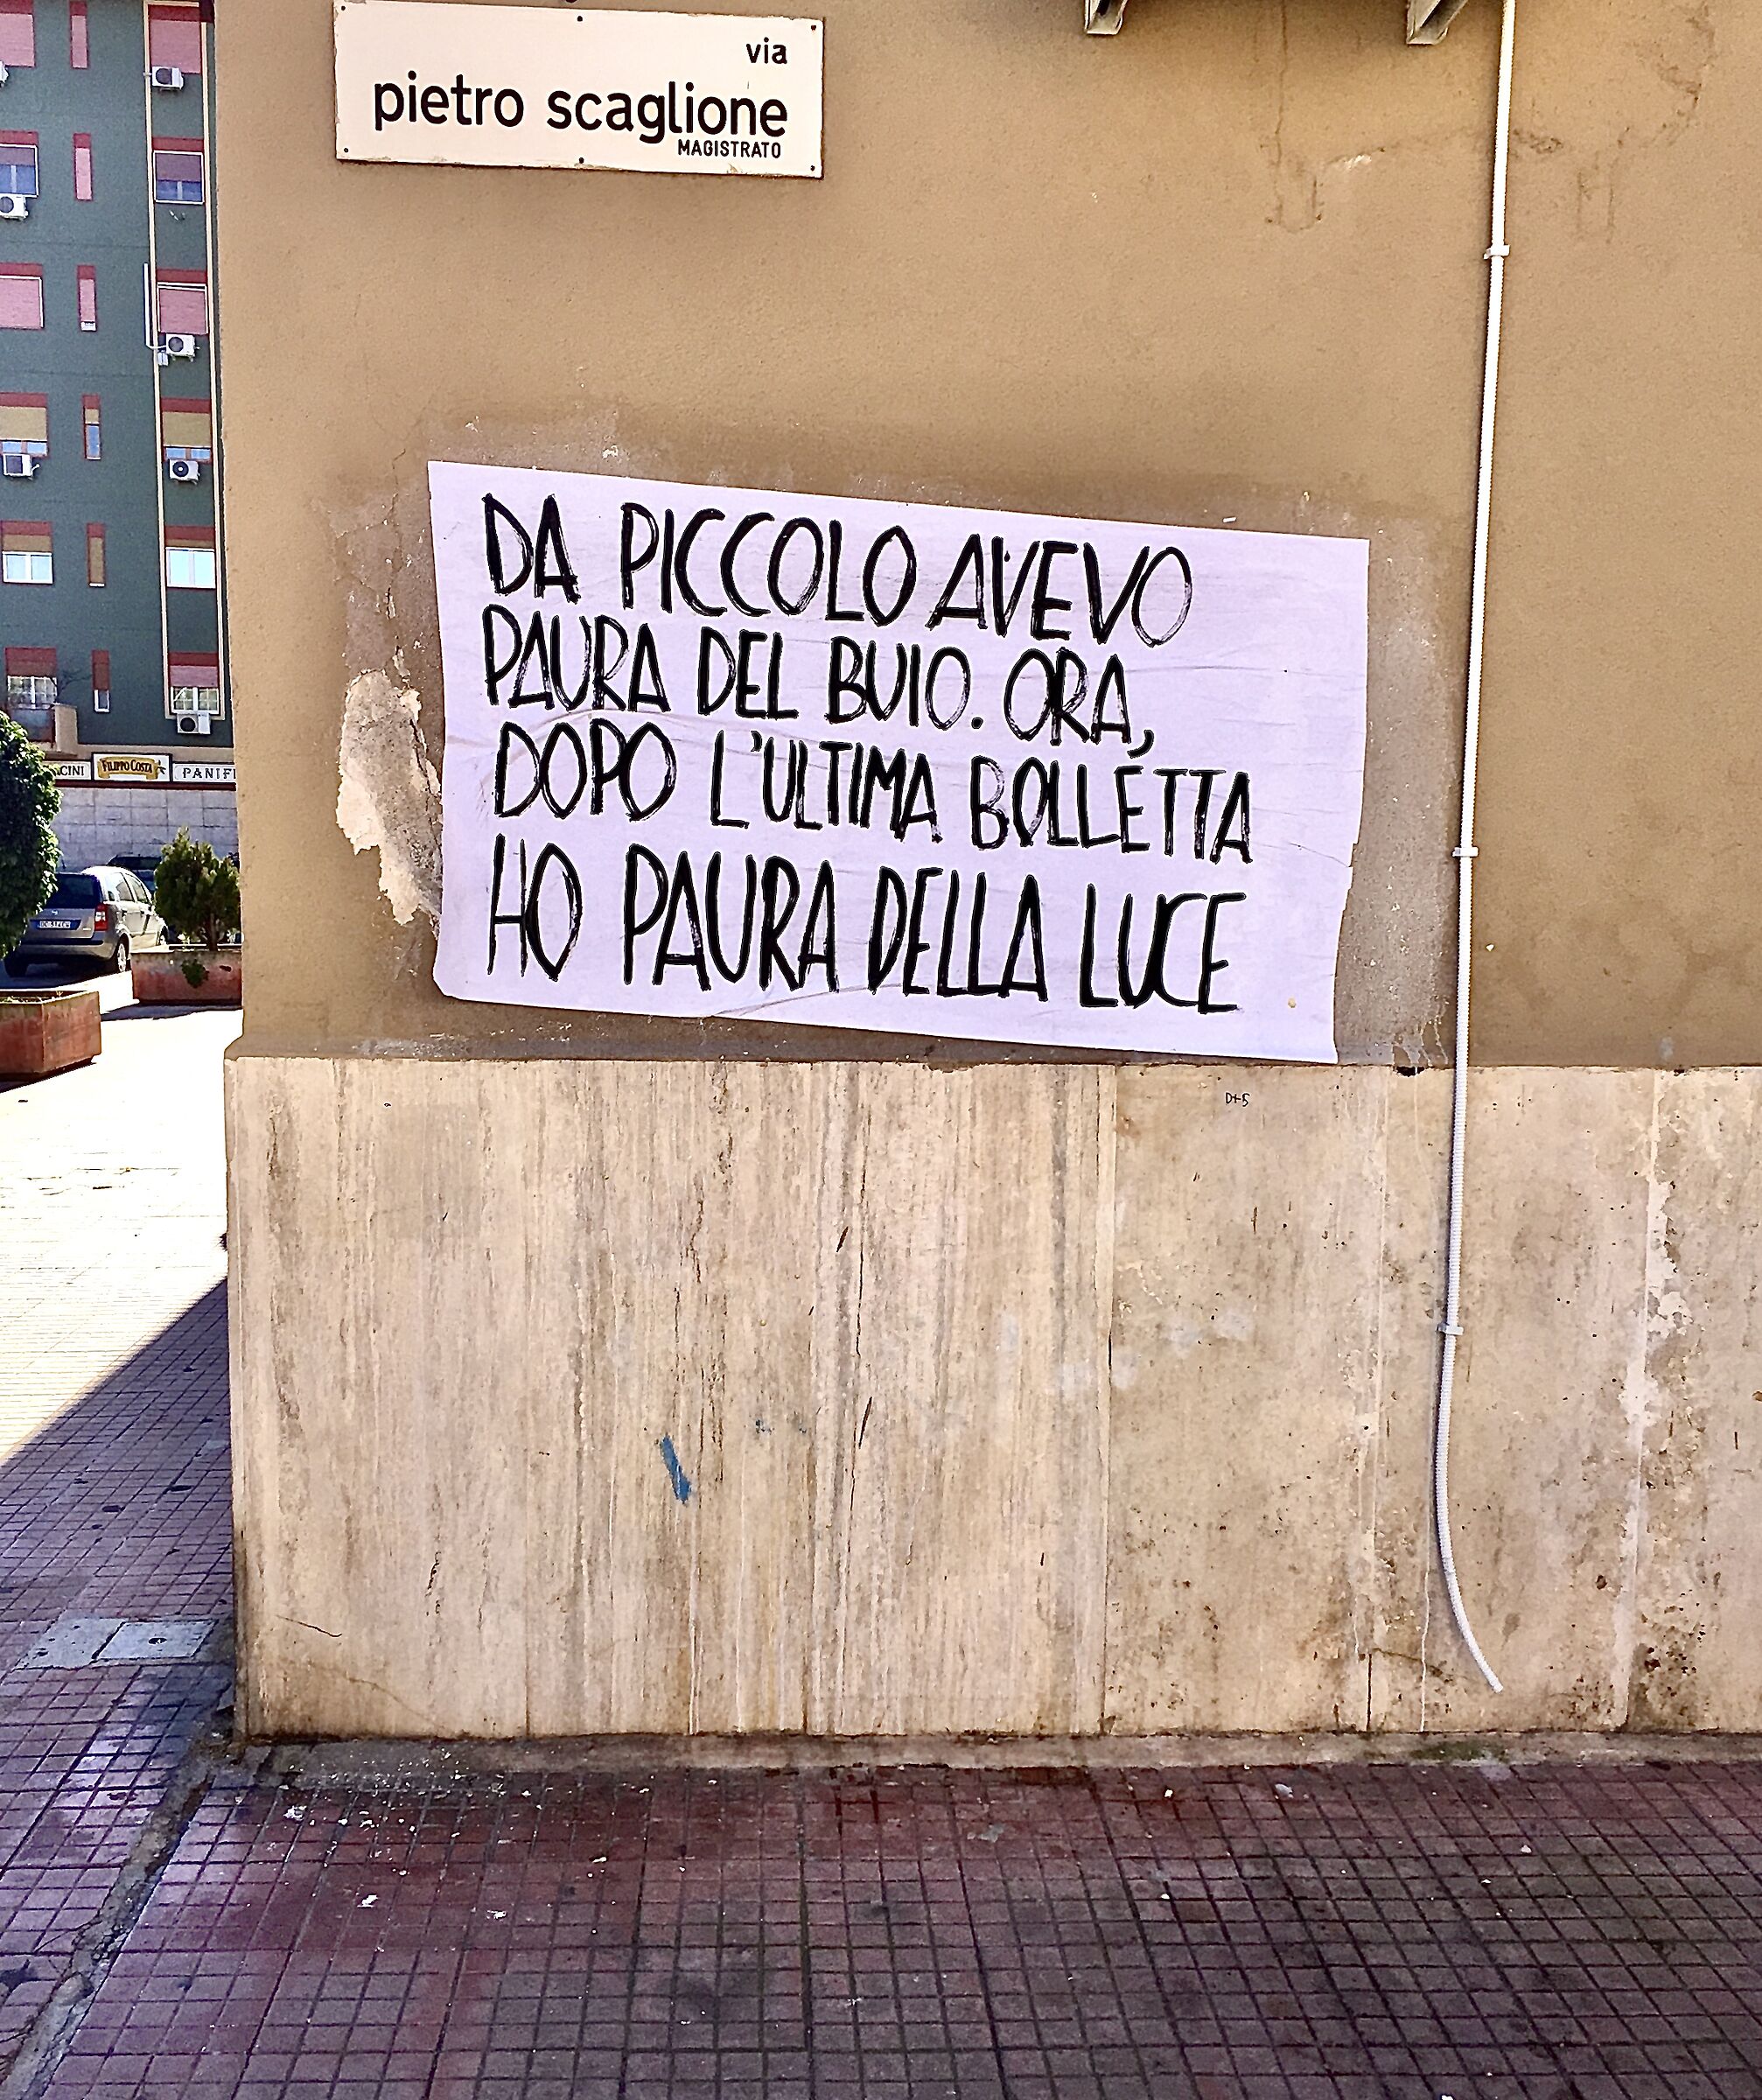 via
pietro scaglione
MAGISTRATO
DA PICCOLO AVEVO
PAURA DEL BUIO. ORA,
DOPO L'ULTIMA BOLLETTA
HO PAURA DELLA LUCE
FILIPPO COSTA